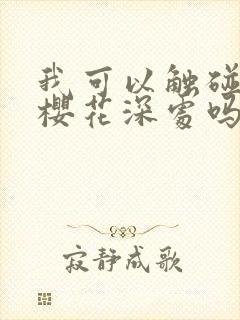 我可以触碰
樱花深处吗
寂静成歌